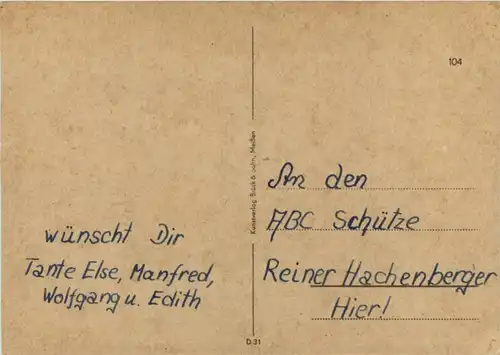 wünscht Dir
Tante Else, Manfred,
Wolfgang u. Edith
D 31
Kunstverlag Brück & Sohn, Meißen
104
An den
ABC Schütze
Reiner Hachenberger
Hier!